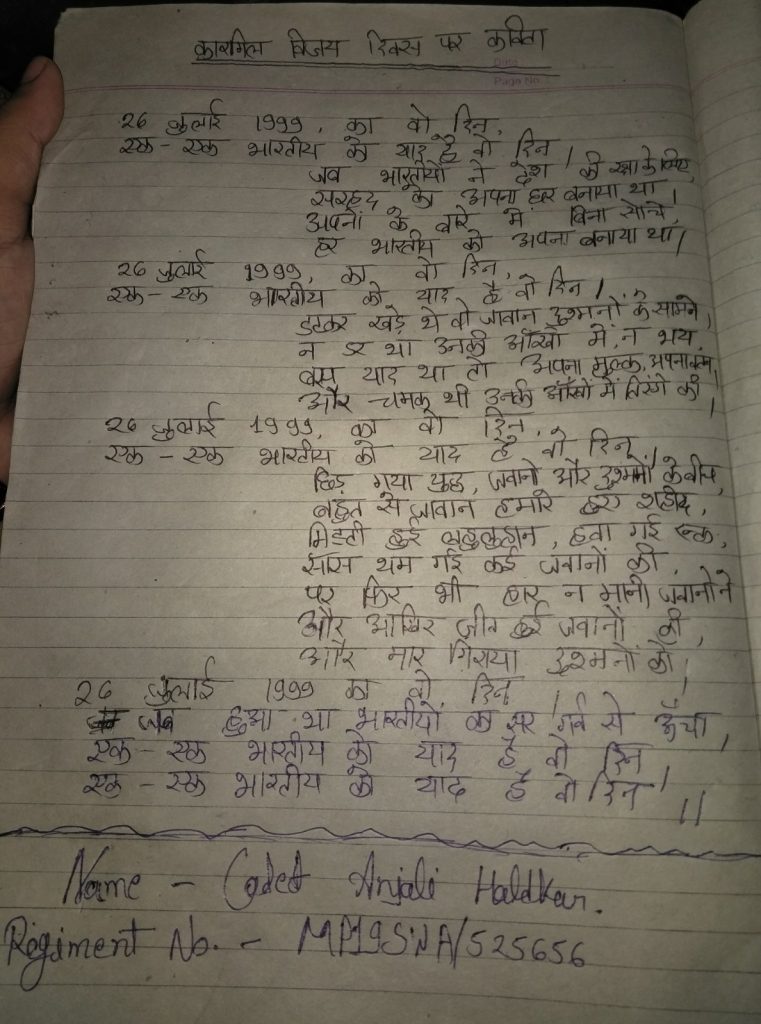 कारगिल विजय दिवस पर कविता
Date
Page No.
26 जुलाई 1999, का वो दिन,
एक-एक भारतीय को याद है वो दिन।
जब भारतीयों ने देश की रक्षा के लिए,
सरहद को अपना घर बनाया था।
अपनों के बारे में बिना सोचे,
हर भारतीय को अपना बनाया था।
26 जुलाई 1999, का वो दिन,
एक-एक भारतीय को याद है वो दिन।
डटकर खड़े थे वो जवान दुश्मनों के सामने,
न डर था उनकी आँखों में, न भय,
बस याद था तो अपना मुल्क, अपना
और चमक थी उनकी आँखों में तिरंगे की।
26 जुलाई 1999, का वो दिन,
एक-एक भारतीय को याद है वो दिन।
छिड़ गया युद्ध, जवानों और दुश्मनों के बीच,
बहुत से जवान हमारे हुए शहीद,
मिट्टी हुई लहुलुहान, हवा गई रूक,
सांस थम गई कई जवानों की,
पर फिर भी हार न मानी जवानों ने
और आखिर जीत हुई जवानों की,
और मार गिराया दुश्मनों को।
26 जुलाई 1999 का वो दिन।
जब हुआ था भारतीयों का सर गर्व से ऊँचा,
एक-एक भारतीय को याद है वो दिन,
एक-एक भारतीय को याद है वो दिन।।
Name - Cadet Anjali Haldkar.
Regiment No. - MP19SWA/525656